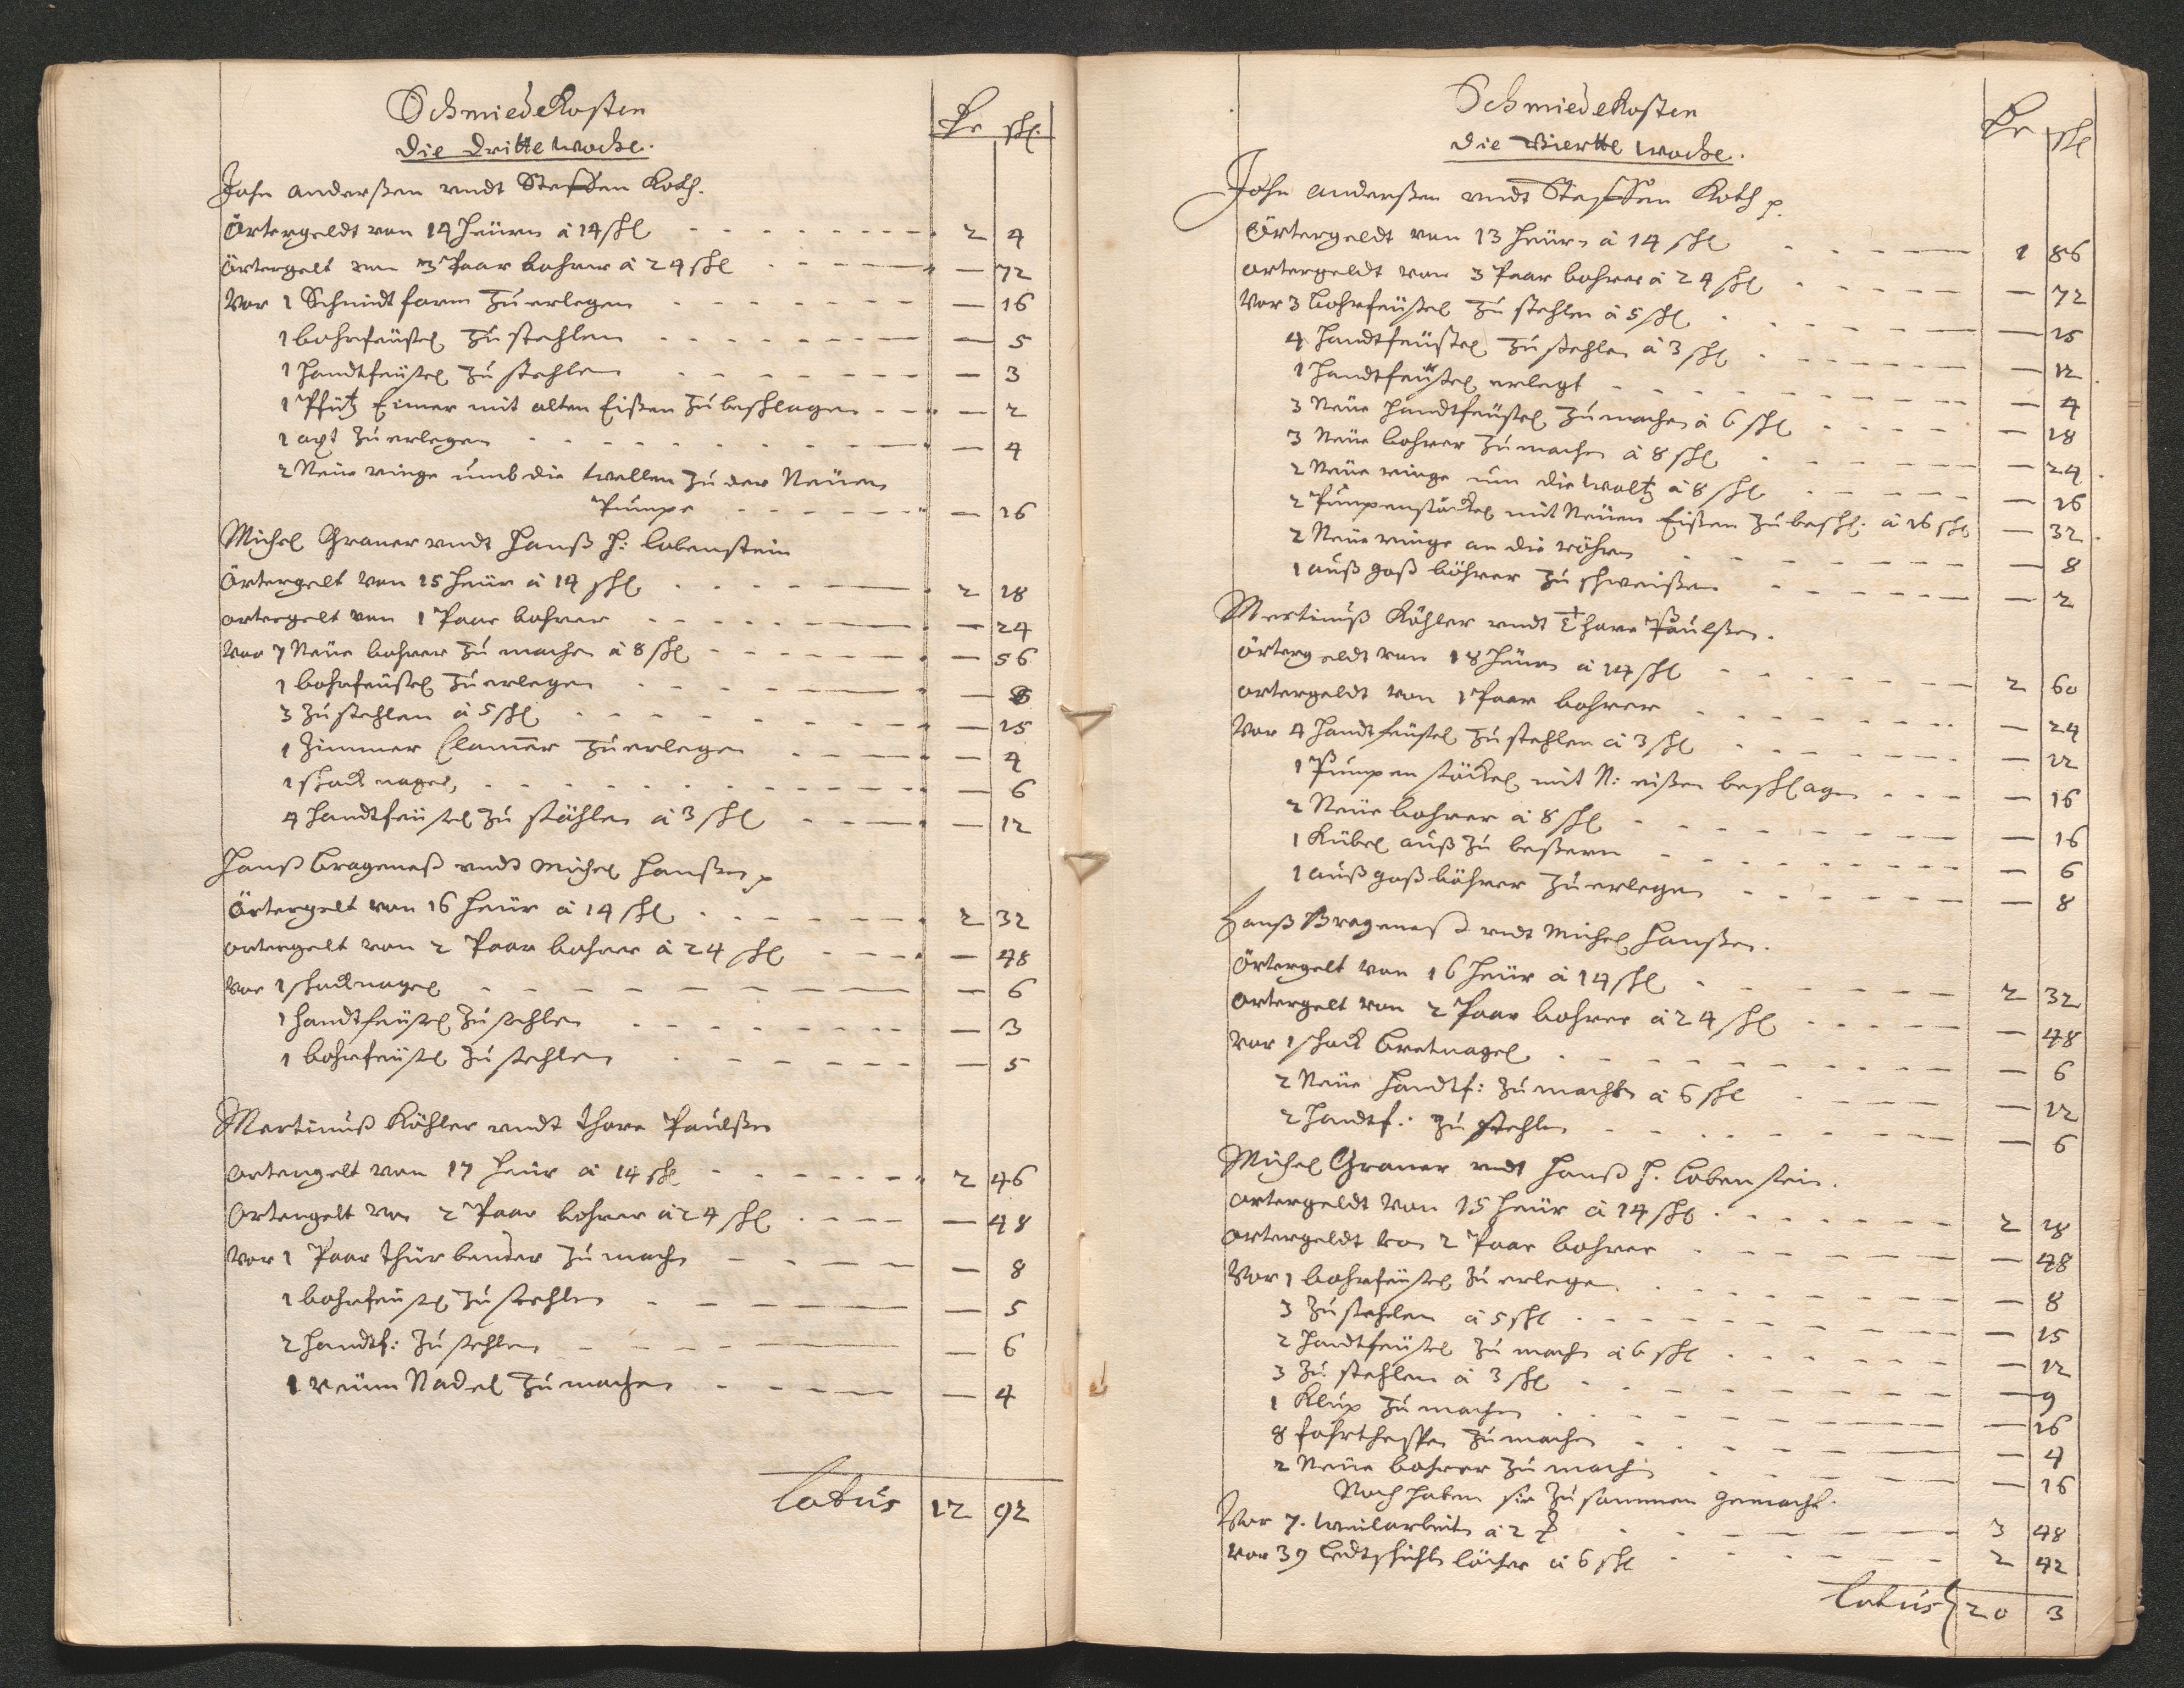 Schmiedekosten
die dritte woche.
Rr schl.
John anderßen undt Steffen Koch.
Örtergeldt von 14 Heürn à 14 schl 2 4
Örtergelt von 3 Paar bohrer à 24 schl — 72
Vor 1 Schmidt form zu erlegen — 16
1 bohrfeüstel zu stehlen — 5
1 Handtfeüstel zu stehlen — 3
1 Pfütz Eimer mit alten Eißen zu beschlagen — 2
1 axt zu erlegen — 4
2 Neüe ringe umb die wellen zu der Neüen
Pumpe — 16
Michel Graner undt Hanß H: Lobenstein
Örtergelt von 15 Heür à 14 schl 2 18
ortergelt von 1 Paar bohrer — 24
Vor 7 Neüe bohrer zu machen à 8 schl — 56
1 bohrfeüstel zu erlegen — 8
3 zu stehlen à 5 schl — 15
1 Zimmer Clamer zu erlegen — 4
1 schock nagel — 6
4 Handtfeüstel zu stählen à 3 schl — 12
Hanß Brageneß undt Michel Hanßen
Örtergelt von 16 Heür à 14 schl 2 32
ortergelt von 2 Paar bohrer à 24 schl — 48
Vor 1 schocknagel — 6
1 Handtfeüstel zu stehlen — 3
1 bohrfeüstel zu stehlen — 5
Martinuß Köhler undt Thore Paulßen
Ortergelt von 17 Heür à 14 schl 2 46
Ortergelt von 2 Paar bohrer à 24 schl — 48
Vor 1 Paar thür bender zu machen — 8
1 bohrfeüstel zu stehlen — 5
2 Handtf: zu stehlen — 6
1 reüm Nadel zu machen — 4
Latus 12 92
Schmiedekosten
die Viertte woche.
Rr schl
John anderßen undt Steffen Koch
Örtergeldt von 13 Heür à 14 schl 1 86
ortergeldt von 3 Paar bohrer à 24 schl — 72
Vor 3 bohrfeüstel zu stehlen à 5 schl — 15
4 Handtfeüstel zu stehlen à 3 schl — 12
1 Handtfeüstel erlegt — 4
3 Neüe Handtfeüstel zu machen à 6 schl — 18
3 Neüe bohrer zu machen à 8 schl — 24
2 Neüe ringe um die waltz à 8 schl — 16
2 Pumpenstöckel mit Neüen Eißen zu beschl: à 16 schl — 32
2 Neüe ringe an die röhren — 8
1 auß goß böhrer zu schweißen — 2
Martinuß Köhler undt Thore Paulßen.
Örtergeldt von 18 Heürn à 14 schl 2 60
ortergeldt von 1 Paar bohrer — 24
Vor 4 Handtfeüstel zu stehlen à 3 schl — 12
1 Pumpen stöckel mit N: eißen beschlagen — 16
2 Neüe bohrer à 8 schl — 16
1 Kübel auß zu beßern — 6
1 außgoß böhrer zu erlegen — 8
Hanß Brageneß undt Michel Hanßen.
Örtergelt von 16 Heür à 14 schl 2 32
Ortergelt von 2 Paar bohrer à 24 schl — 48
Vor 1 schock bretnagel — 6
2 Neüe Handtf: zu machen à 6 schl — 12
2 Handtf: zu stehlen — 6
Michel Graner undt Hanß H. Lobenstein.
Ortergeldt von 15 Heür à 14 schl 2 18
Ortergeldt von 2 Paar bohrer — 48
Vor 1 bohrfeüstel zu erlegen — 8
3 zu stehlen à 5 schl — 15
2 Handtfeüstel zu machen à 6 schl — 12
3 zu stehlen à 3 schl — 9
1 Klup zu machen — 16
8 fahrthespen zu machen — 4
2 Neüe bohrer zu machen — 16
Noch haben sie zusammen gemacht.
Vor 7. weilarbeit à 2 3 48
Vor 39 ledtschicht löcher à 6 schl 2 42
Latus 20 3